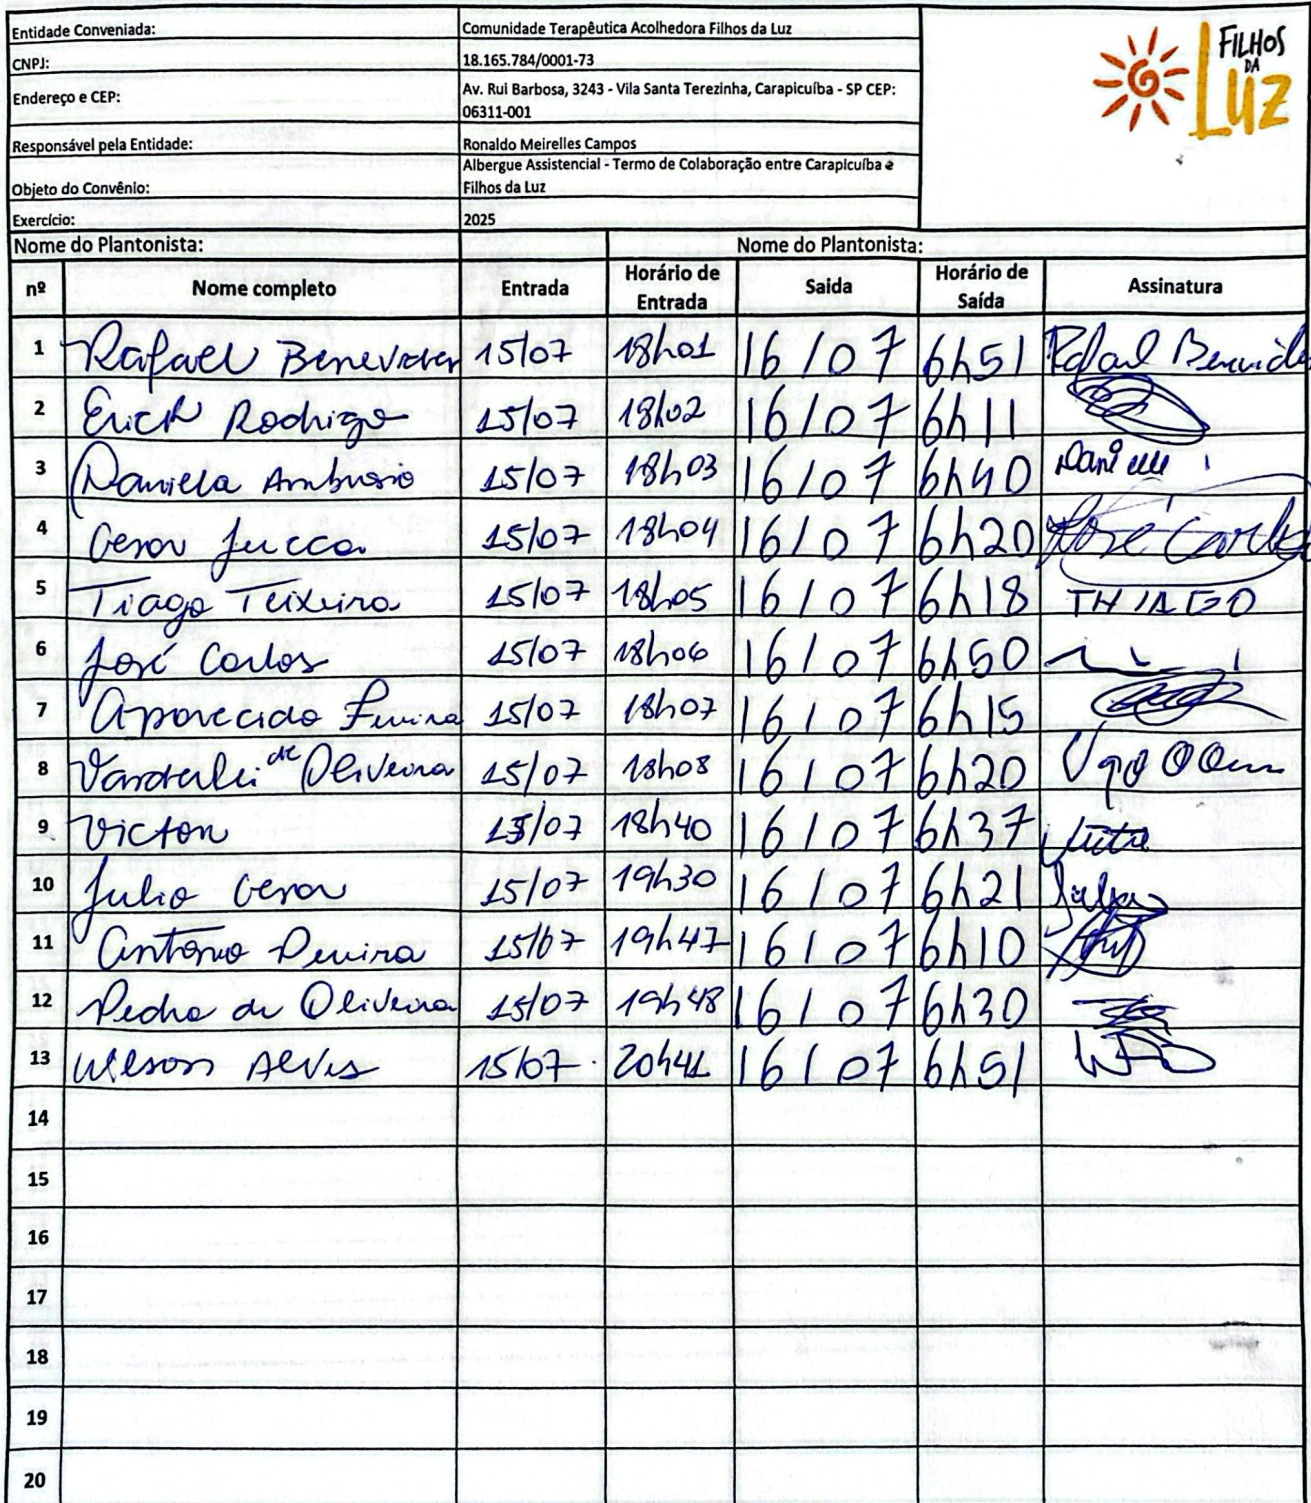 Entidade Conveniada: Comunidade Terapêutica Acolhedora Filhos da Luz
FILHOS DA LUZ
CNPJ: 18.165.784/0001-73
Endereço e CEP: Av. Rui Barbosa, 3243 - Vila Santa Terezinha, Carapicuíba - SP CEP:
06311-001
Responsável pela Entidade: Ronaldo Meirelles Campos
Objeto do Convênio: Albergue Assistencial - Termo de Colaboração entre Carapicuíba e
Filhos da Luz
Exercício: 2025
Nome do Plantonista: Nome do Plantonista:
nº Nome completo Entrada Horário de Entrada Saida Horário de Saída Assinatura
1 Rafael Benevides 15/07 18h01 16/07 6h51 Rafael Benevides
2 Erick Rodrigo 15/07 18h02 16/07 6h11
3 Daniela Ambrosio 15/07 18h03 16/07 6h40 Daniele
4 Cesar Jucca 15/07 18h04 16/07 6h20 José Carlos
5 Tiago Teixeira 15/07 18h05 16/07 6h18 THIAGO
6 José Carlos 15/07 18h06 16/07 6h50
7 Aparecido 15/07 18h07 16/07 6h15
8 Vanderlei de Oliveira 15/07 18h08 16/07 6h20
9 Victor 15/07 18h40 16/07 6h37
10 Julio Cesar 15/07 19h30 16/07 6h21
11 Antonio 15/07 19h47 16/07 6h10
12 Pedro de Oliveira 15/07 19h48 16/07 6h30
13 Wilson Alves 15/07 20h41 16/07 6h51
14
15
16
17
18
19
20